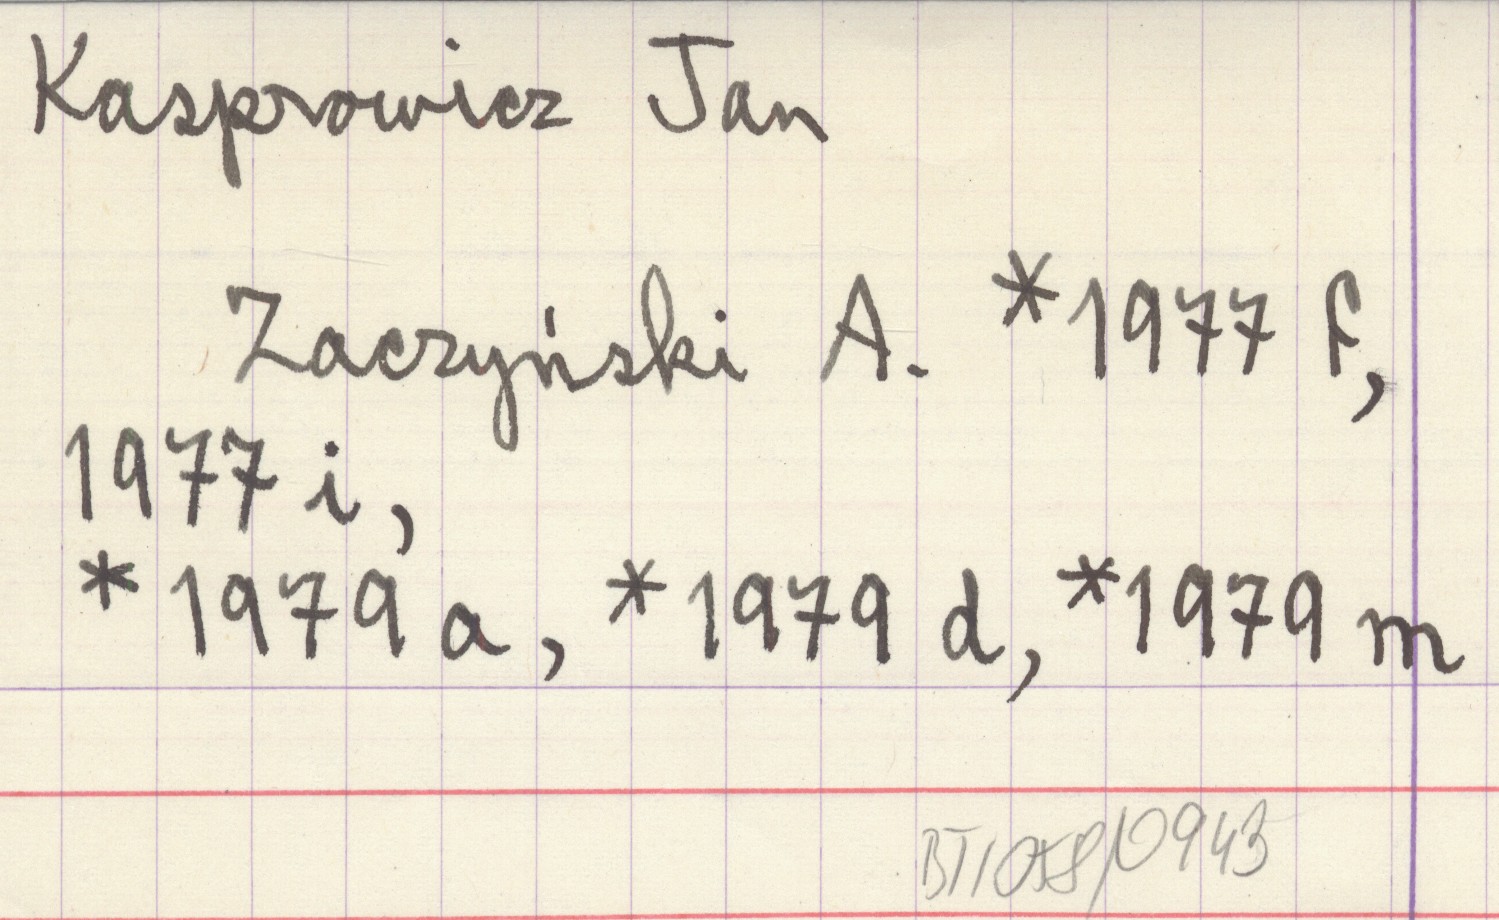 Kasprowicz Jan
Zaczyński A. *1977 f,
1977 i,
*1979 a, *1979 d, *1979 m
BT1058/0943